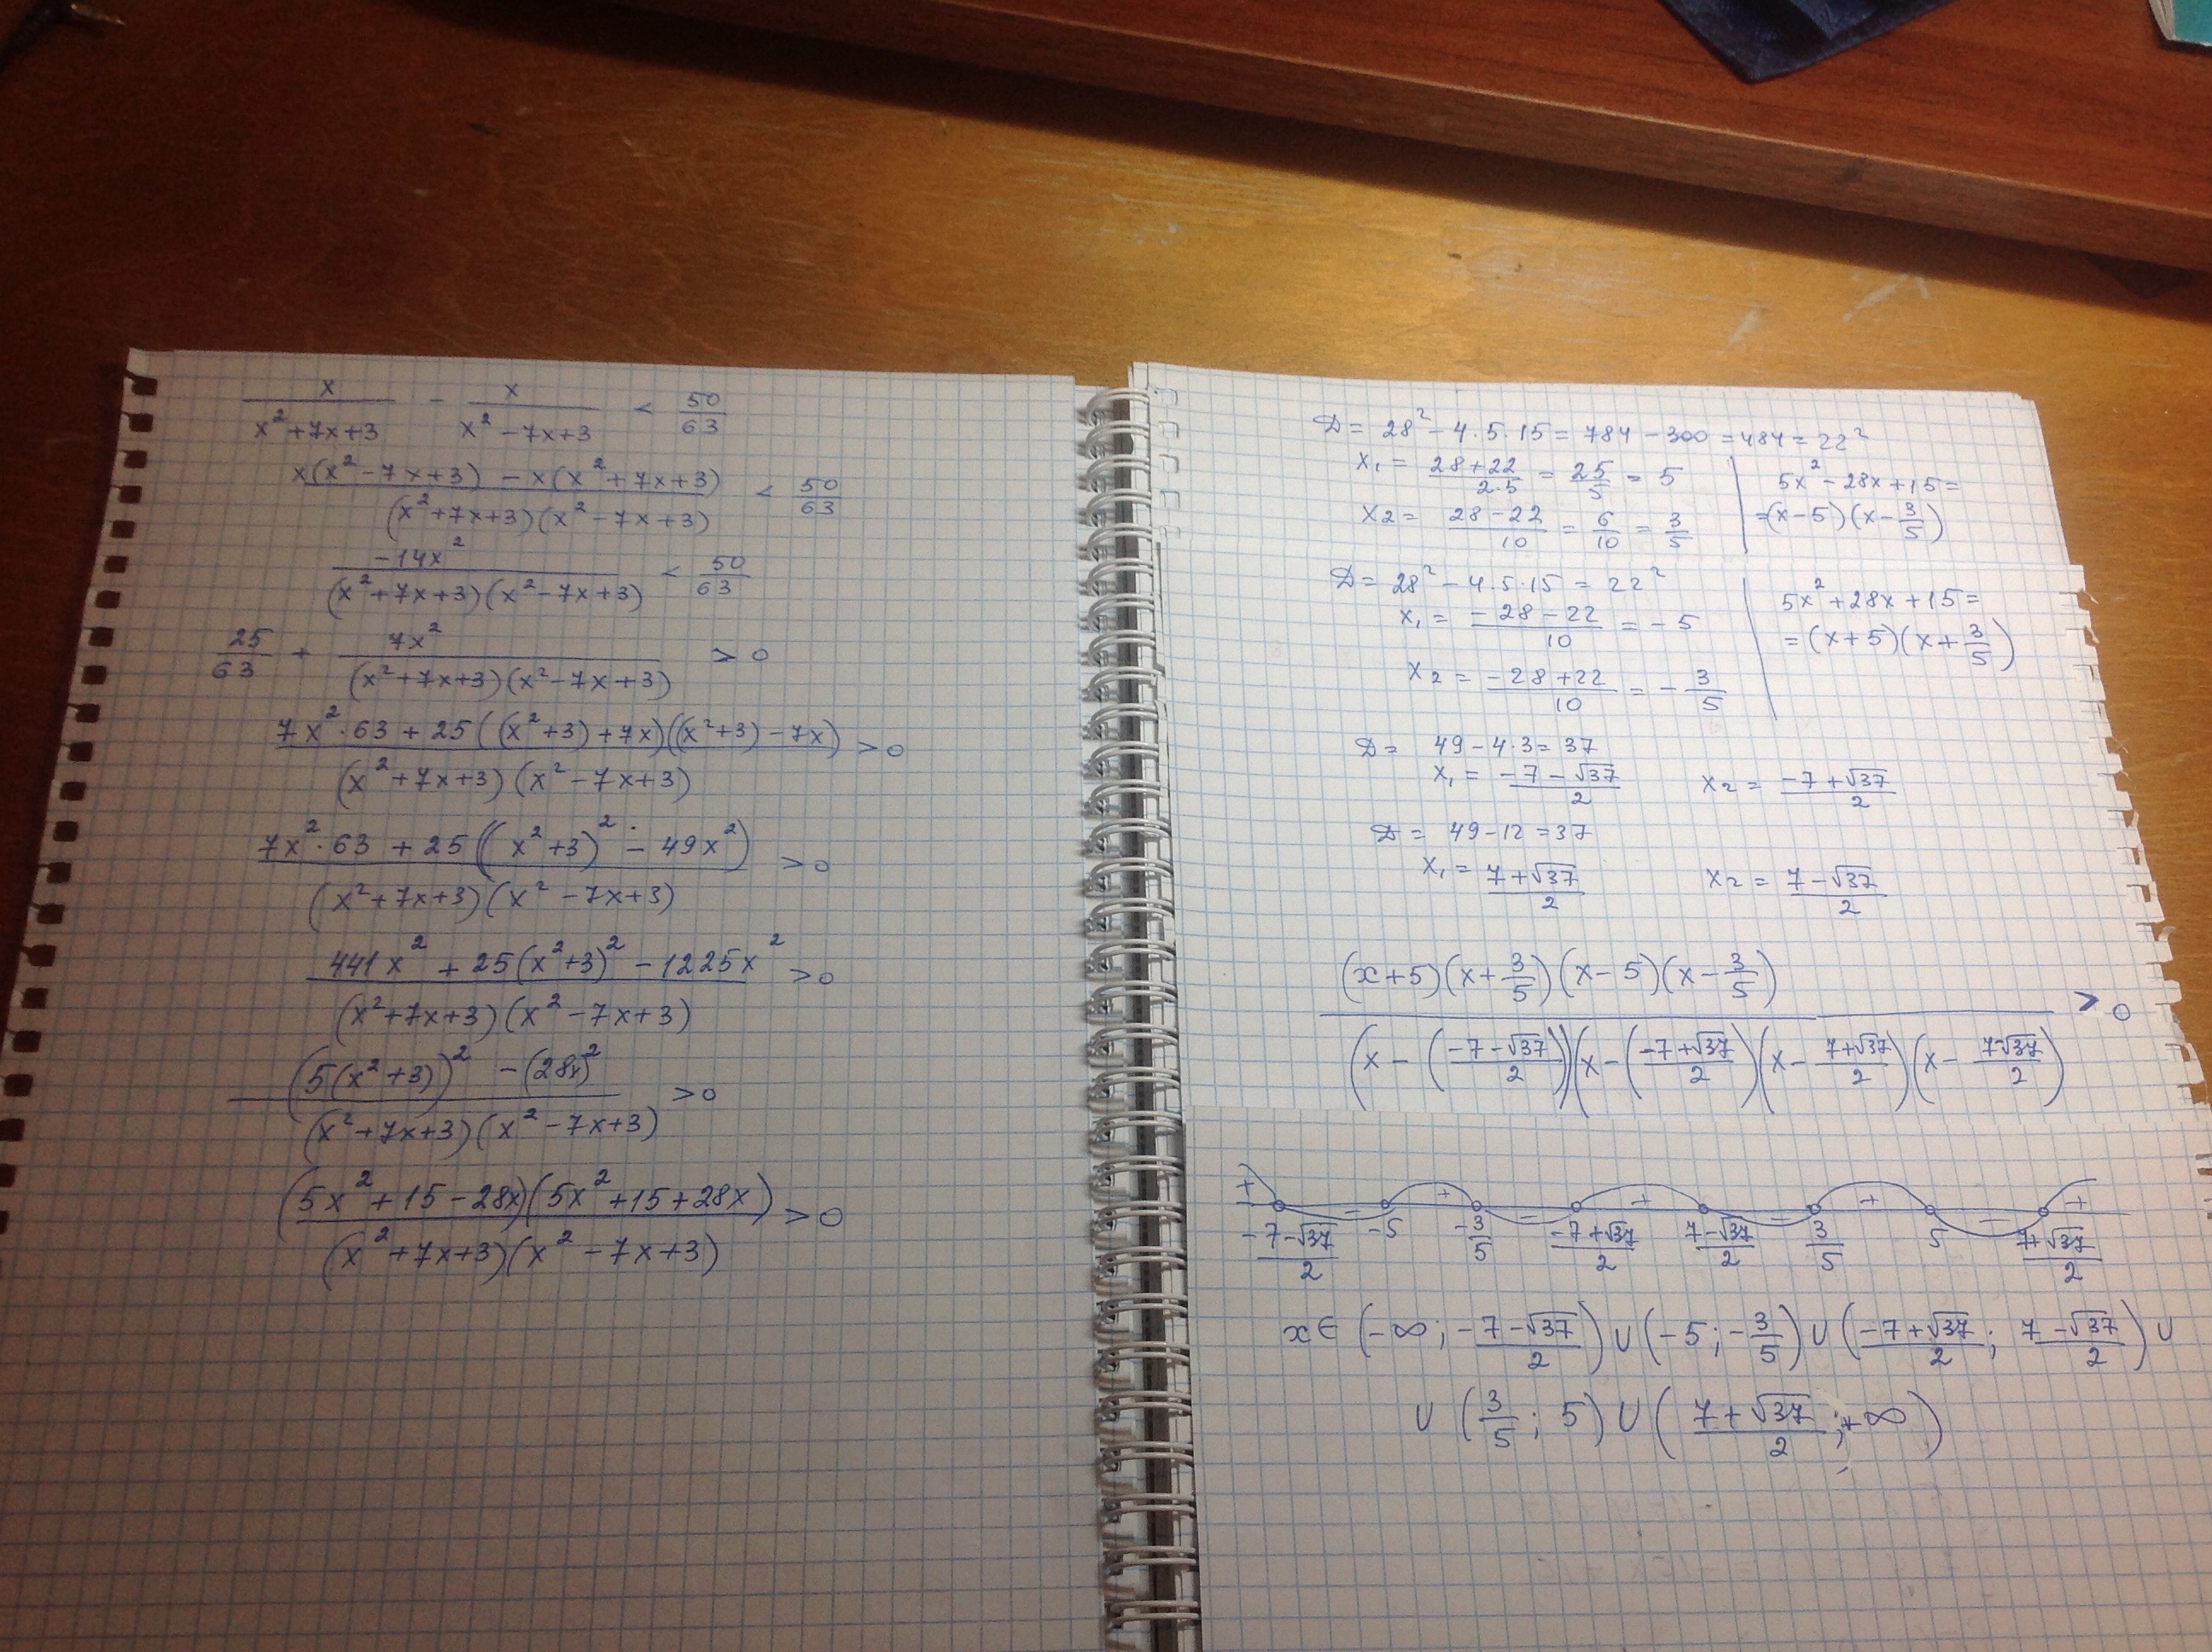 x/(x²+7x+3) - x/(x²-7x+3) < 50/63
(x(x²-7x+3) - x(x²+7x+3))/((x²+7x+3)(x²-7x+3)) < 50/63
-14x²/((x²+7x+3)(x²-7x+3)) < 50/63
25/63 + 7x²/((x²+7x+3)(x²-7x+3)) > 0
(7x²·63 + 25((x²+3)+7x)((x²+3)-7x))/((x²+7x+3)(x²-7x+3)) > 0
(7x²·63 + 25((x²+3)² - 49x²))/((x²+7x+3)(x²-7x+3)) > 0
(441x² + 25(x²+3)² - 1225x²)/((x²+7x+3)(x²-7x+3)) > 0
((5(x²+3))² - (28x)²)/((x²+7x+3)(x²-7x+3)) > 0
((5x²+15-28x)(5x²+15+28x))/((x²+7x+3)(x²-7x+3)) > 0
D = 28² - 4·5·15 = 784 - 300 = 484 = 22²
x₁ = (28+22)/(2·5) = 25/5 = 5
x₂ = (28-22)/10 = 6/10 = 3/5
5x²-28x+15=
=(x-5)(x-3/5)
D = 28² - 4·5·15 = 22²
x₁ = (-28-22)/10 = -5
x₂ = (-28+22)/10 = -3/5
5x²+28x+15=
=(x+5)(x+3/5)
D = 49-4·3=37
x₁ = (-7-√37)/2 x₂ = (-7+√37)/2
D = 49-12=37
x₁ = (7+√37)/2 x₂ = (7-√37)/2
((x+5)(x+3/5)(x-5)(x-3/5))/((x-((-7-√37)/2))(x-((-7+√37)/2))(x-(7+√37)/2)(x-(7-√37)/2)) > 0
+ - + - + - + - +
(-7-√37)/2 -5 -3/5 (-7+√37)/2 (7-√37)/2 3/5 5 (7+√37)/2
x∈(-∞; (-7-√37)/2)∪(-5; -3/5)∪((-7+√37)/2; (7-√37)/2)∪
∪(3/5; 5)∪((7+√37)/2; +∞)